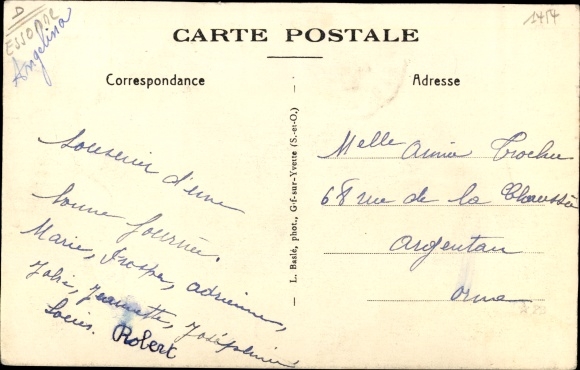 D
ESSONNE
Angelina
1454
CARTE POSTALE
Correspondance
Adresse
Souvenir d'une
bonne journée.
Marie, Prosper, Adrienne,
Jeannette, Joséphine
Robert
L. Baslé, phot., Gif-sur-Yvette (S.-et-O.)
Melle Annie Trochu
68 rue de la Chaussée
Argentan
Orne